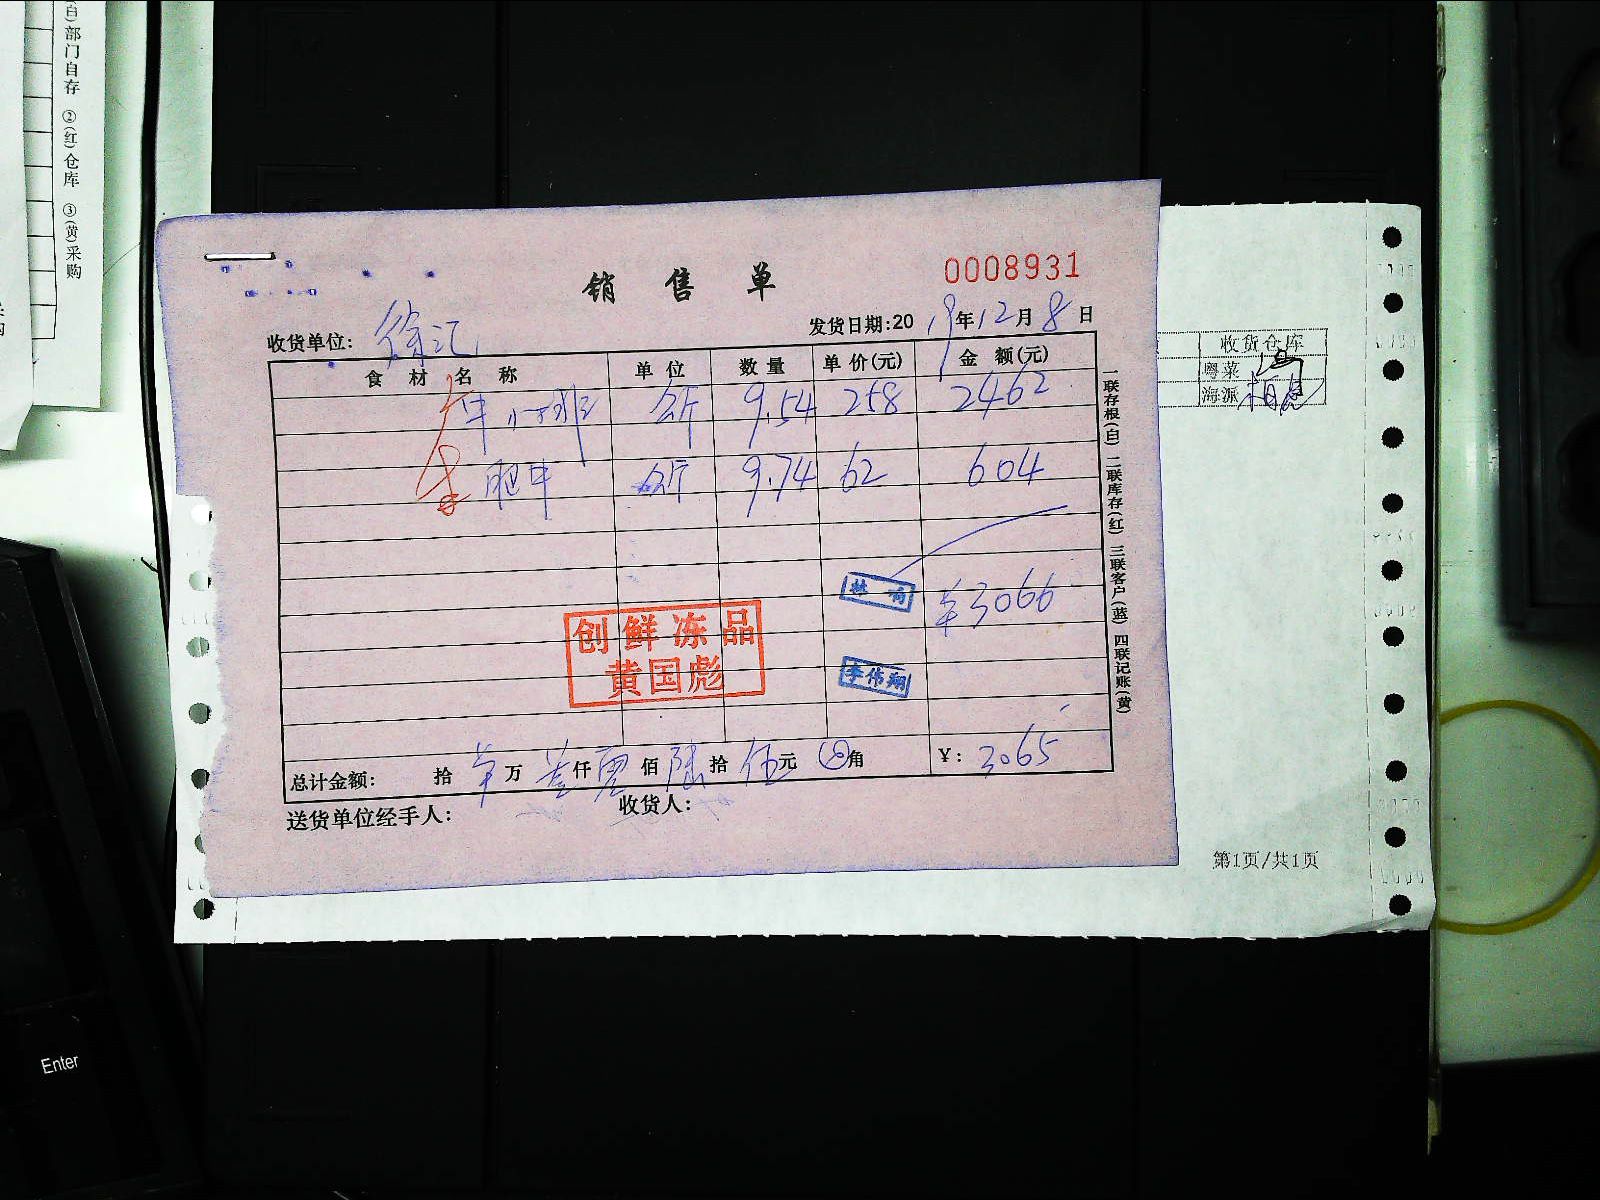 (白)部门自存 ②(红)仓库 ③(黄)采购
销售单
0008931
收货单位: 徐汇
发货日期:2019年12月8日
食材名称 单位 数量 单价(元) 金额(元)
牛小排 公斤 9.54 258 2462
肥牛 公斤 9.74 62 604
¥3066
创鲜冻品
黄国彪
李伟翔
总计金额: 拾 万 叁仟 零佰 陆拾 伍元 角 ¥: 3065
送货单位经手人:
收货人:
一联存根(白) 二联库存(红) 三联客户(蓝) 四联记账(黄)
收货仓库
粤菜
海派
第1页/共1页
Enter